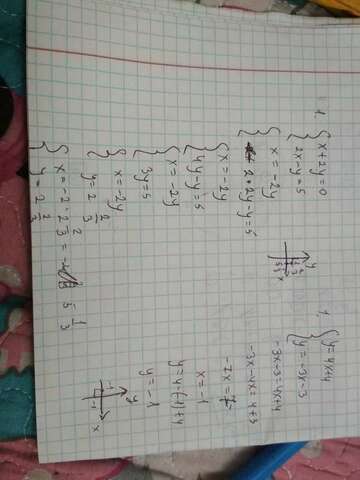 1. { x+2y=0
2x-y=5
{ x=-2y
2·2y-y=5
{ x=-2y
4y-y=5
{ x=-2y
3y=5
{ x=-2y
y=2 2/3
{ x=-2·2 2/3 = - 5 1/3
y=2 2/3
y
x
1. { y=4x+4
y=-3x-3
-3x-3=4x+4
-3x-4x=4+3
-7x=7
x=-1
y=4·(-1)+4
y=-1
y
-1
-1
x